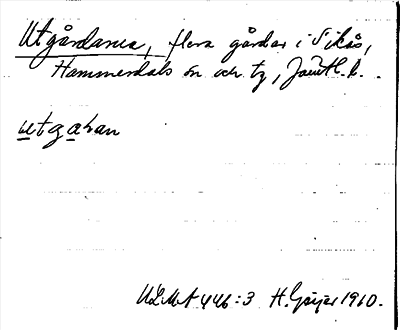 Utgårdarna, flera gårdar i Sikås,
Hammerdals sn och tg, Jämtl. l.
utgaran
ULMA 446:3 H. Geijer 1910.